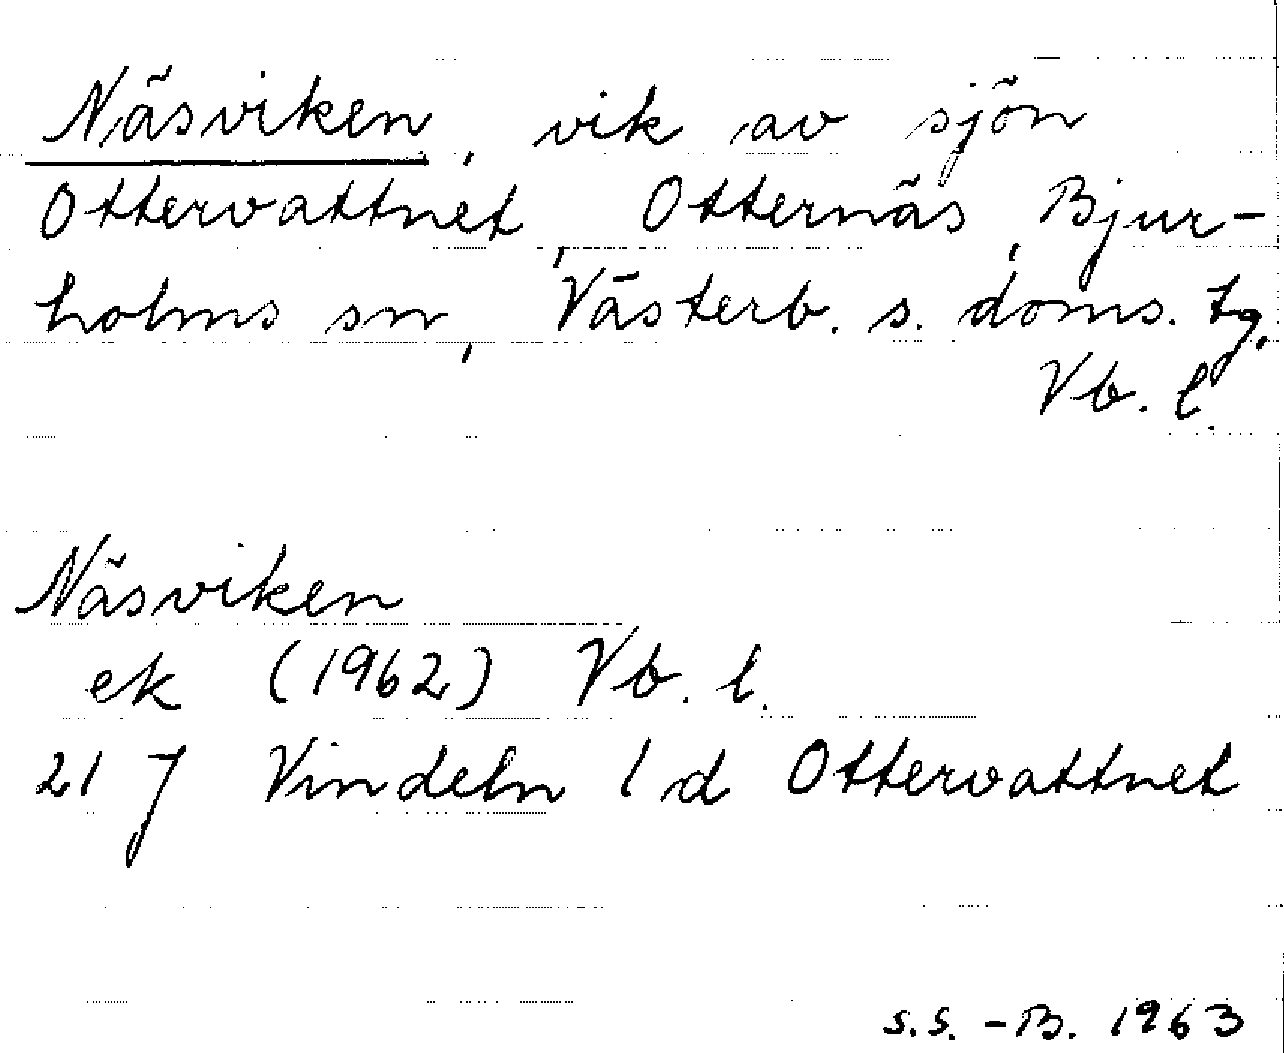 Näsviken, vik av sjön
Ottervattnet, Otternäs, Bjur-
holms sn, Västerb. s. doms. tg,
Vb. l.
Näsviken
ek (1962) Vb. l.
21 J Vindeln 1 d Ottervattnet
S.S. -B. 1963